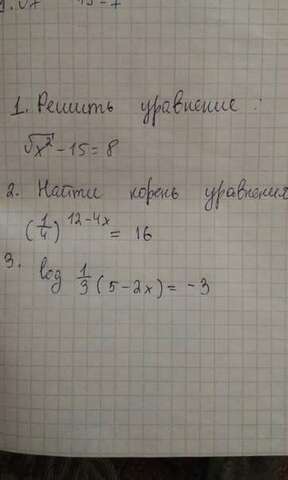 1. Решить уравнение:
√x² - 15 = 8
2. Найти корень уравнения
(1/4)^12-4x = 16
3. log 1/3 (5-2x) = -3